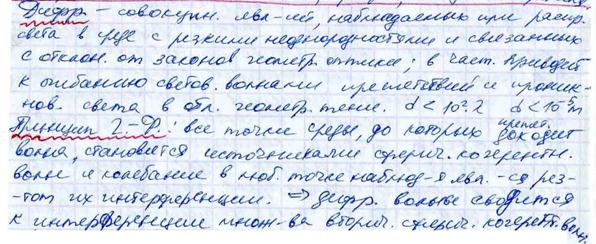 Дифр – совокупн. явл-ий, наблюдаемых при распр.
света в среде с резкими неоднородностями и связанных
с отклон. от законов геометр. оптики; в част. приводит
к огибанию светов. волнами препятствий и проник-
нов. света в обл. геометр. тени. d < 10².λ d < 10⁻⁵ м
препят.
Принцип Г-Ф: все точки среды, до которых доходит
волна, становятся источниками сферич. когерентн.
волн и колебание в люб. точке наблюд-я явл.-ся рез-
том их интерференции. ⇒ дифр. волны сводится
к интерференции множ-ва вторич. сферич. когерентн. волн.